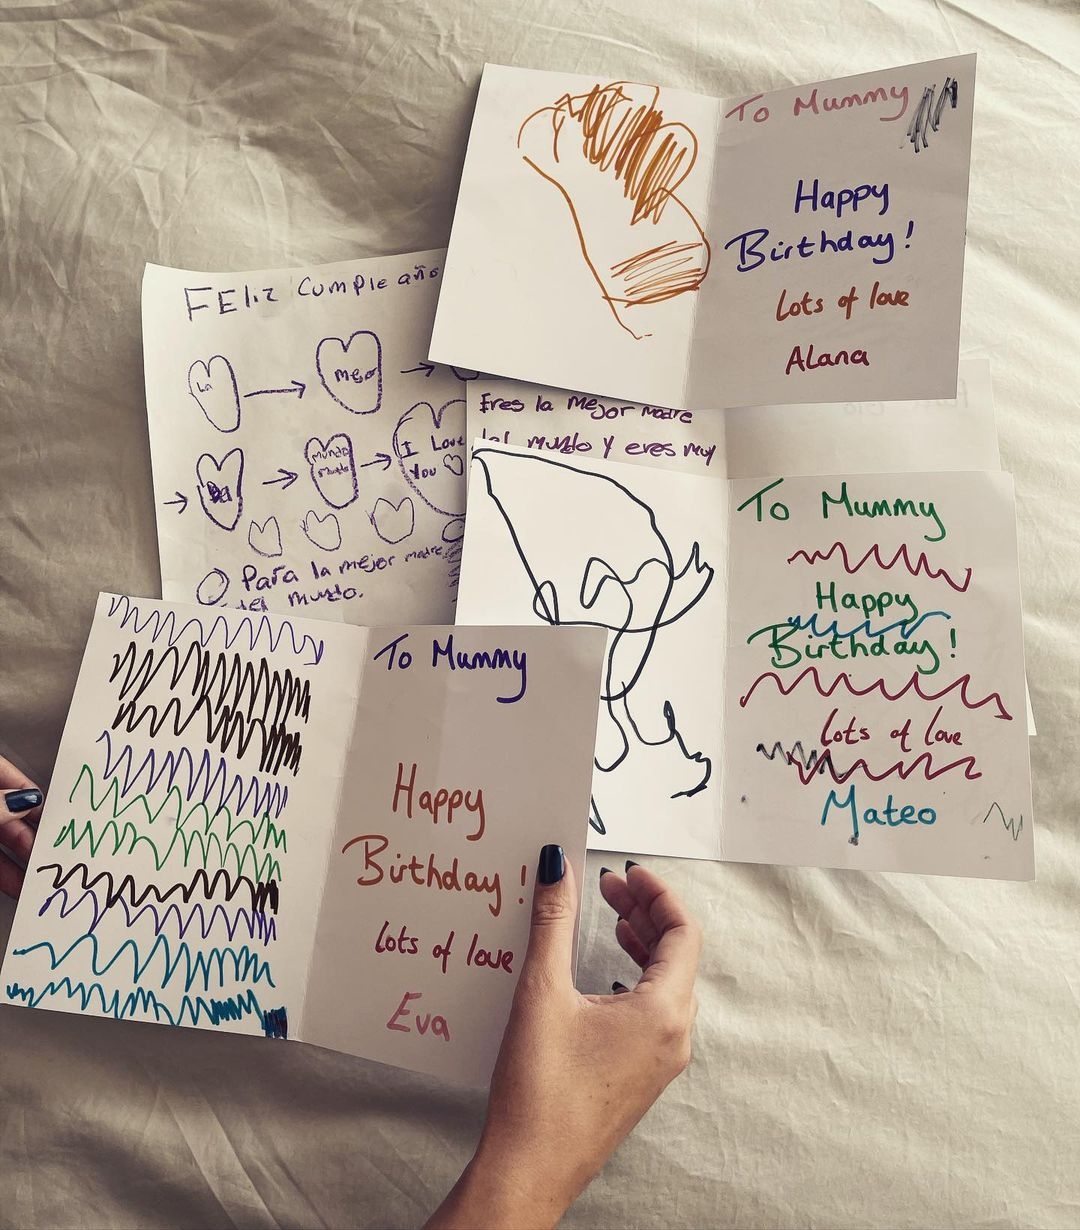 To Mummy
Happy
Birthday!
Lots of love
Alana
FEliz Cumple año
La
mejor
Da
mundo
mundo
I Love
You
Para la mejor madre
del mundo.
Eres la mejor madre
del mundo y eres muy
To Mummy
Happy
Birthday!
Lots of love
Mateo
To Mummy
Happy
Birthday!
Lots of love
Eva